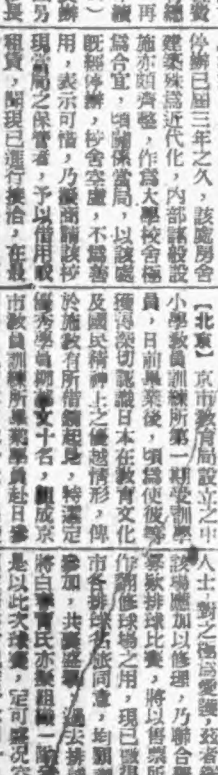 停辦已屆三年之久，該處房舍
建築殊爲近代化，內部諸般設
施亦頗齊整，作爲大學校舍極
爲合宜，頃關係當局，以該處
既經停辦，校舍空廬，不爲善
用，表示可惜，乃擬商請該校
現當局之保管者，予以借用或
租賃，聞現已進行接洽，在最
【北京】京市教育局設立之中
小學教員訓練所第一期受訓學
員，日前畢業後，頃爲使彼等
獲得深切認識日本在教育文化
及國民精神上之優越情形，俾
於施教有所借鏡起見，特選定
優秀學員柳 文十名，組成京
市教員訓練所畢業學員赴日參
人士，對之極爲愛護，茲者
該場應加以修理，乃聯合
募款排球比賽，將以售票所
作 修球場之用，現已徵得
市各排球名旅同意，均願
參加，共襄盛舉，過去排
將白 育氏亦擬組織一隊
是以此次球賽，定可盛況空